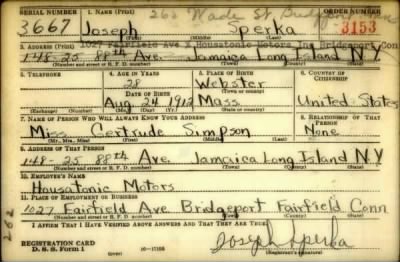 SERIAL NUMBER 1. NAME (Print) 262 Wade St. Bridgeport Conn ORDER NUMBER
3667 Joseph Sperka 3153
(First) (Middle) (Last)
2. ADDRESS (Print) 1027 Fairfield Ave X Housatonic Motors Inc Bridgeport Con
148-25 88th Ave. Jamaica Long Island N.Y.
(Number and street or R. F. D. number) (Town) (County) (State)
3. TELEPHONE 4. AGE IN YEARS 5. PLACE OF BIRTH 6. COUNTRY OF CITIZENSHIP
28 Webster
DATE OF BIRTH (Town or county)
Aug 24 1912 Mass. United States
(Exchange) (Number) (Mo.) (Day) (Yr.) (State or country)
7. NAME OF PERSON WHO WILL ALWAYS KNOW YOUR ADDRESS 8. RELATIONSHIP OF THAT PERSON
Miss Gertrude Simpson None
(Mr., Mrs., Miss) (First) (Middle) (Last)
9. ADDRESS OF THAT PERSON
148-25 88th Ave. Jamaica Long Island N.Y
(Number and street or R. F. D. number) (Town) (County) (State)
10. EMPLOYER'S NAME
Housatonic Motors
11. PLACE OF EMPLOYMENT OR BUSINESS
1027 Fairfield Ave Bridgeport Fairfield Conn
(Number and street or R. F. D. number) (Town) (County) (State)
I AFFIRM THAT I HAVE VERIFIED ABOVE ANSWERS AND THAT THEY ARE TRUE.
262
REGISTRATION CARD
D. S. S. Form 1 (over) Joseph Sperka
(Registrant's signature)